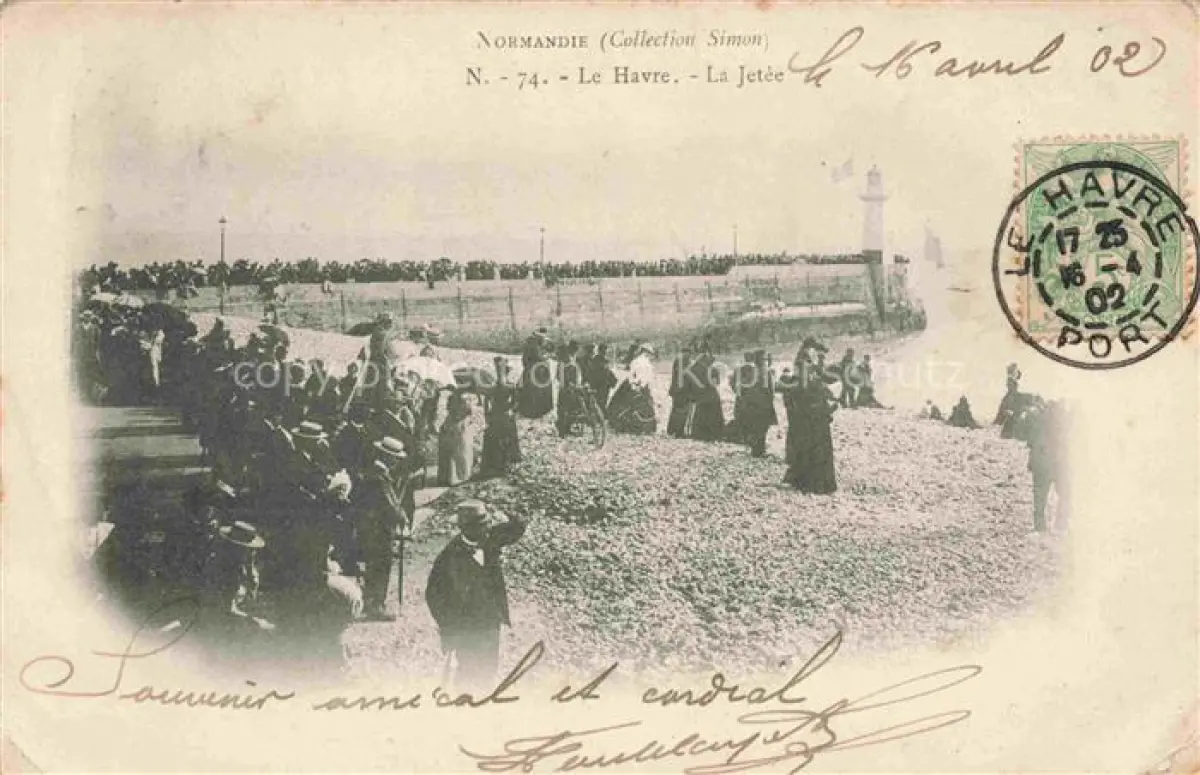 NORMANDIE (Collection Simon)
N. - 74. - Le Havre. - La Jetée
le 16 avril 02
LE HAVRE
17 25
16 - 4
02
PORT
copyright Ansichtskarten Kopierschutz
Souvenir amical et cordial